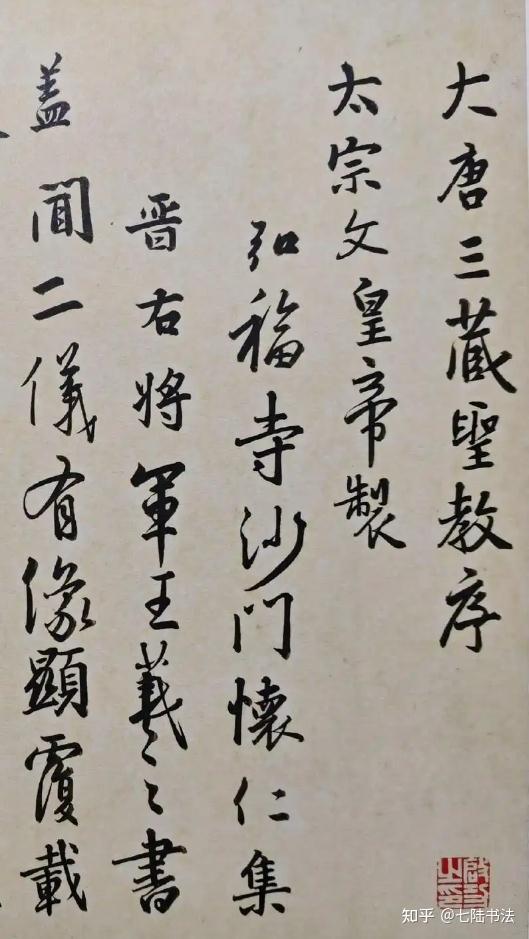 大唐三藏聖教序
太宗文皇帝製
弘福寺沙門懷仁集
晉右將軍王羲之書
蓋聞二儀有像顯覆載
知乎 @七陆书法